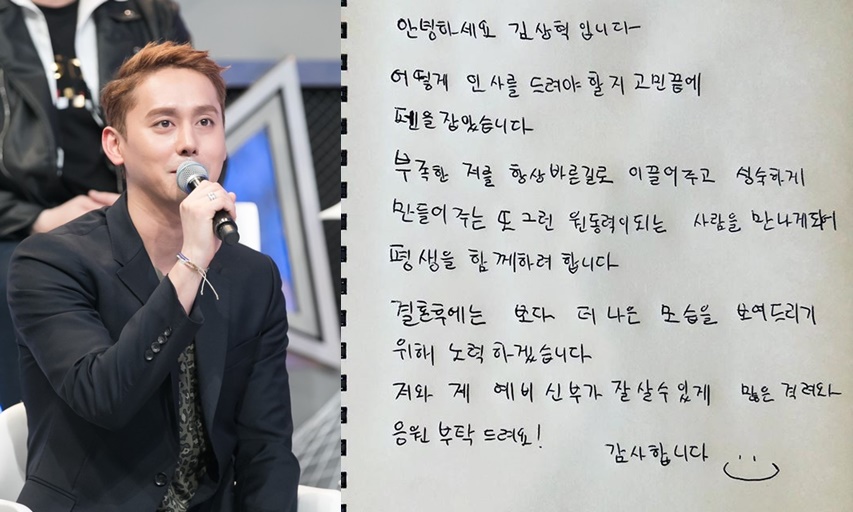 안녕하세요 김상혁 입니다
어떻게 인사를 드려야 할지 고민끝에
펜을 잡았습니다
부족한 저를 항상바른길로 이끌어주고 성숙하게
만들어 주는 또 그런 원동력이되는 사람을 만나게되어
평생을 함께하려 합니다
결혼후에는 보다 더 나은 모습을 보여드리기
위해 노력 하겠습니다
저와 제 예비 신부가 잘살수있게 많은 격려와
응원 부탁 드려요!
감사합니다